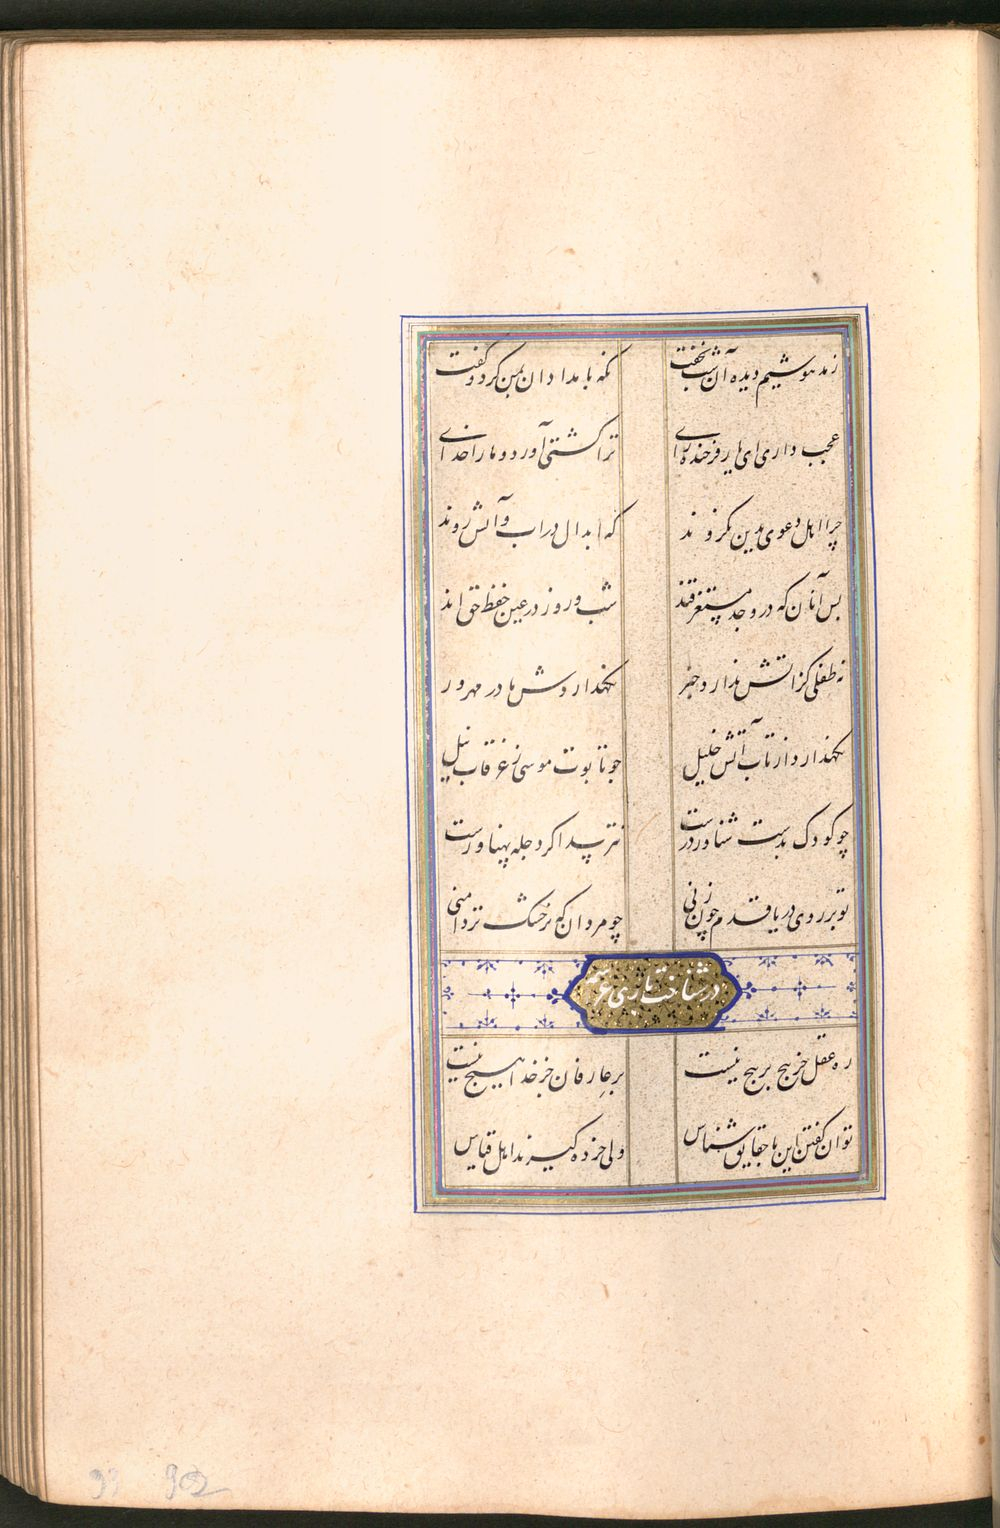 ز مدهوشیم دیده آن شب نخفت
نگه بامدادان بمن کرد و گفت
عجب داری ای یار فرخنده رای
ترا کشتی آورد و ما را خدای
چرا اهل دعوی بدین نگروند
که ابدال در اب و آتش روند
بس آنان که در وجد مستغرقند
شب و روز در عین حفظ حق اند
نه طفلی کز اتش ندارد خبر
نگهداردش مادر مهرور
نگهدارد از تاب آتش خلیل
چو تابوت موسی ز غرقاب نیل
چو کودک بدست شناور درست
نترسد اکر دجله پهناورست
تو بر روی دریا قدم چون زنی
چو مردان که بر خشک تردامنی
در شناخت باری عز اسمه
ره عقل جز پیچ بر پیچ نیست
بر عارفان جز خدا هیچ نیست
توان گفتن این با حقایق شناس
ولی خرده گیرند اهل قیاس